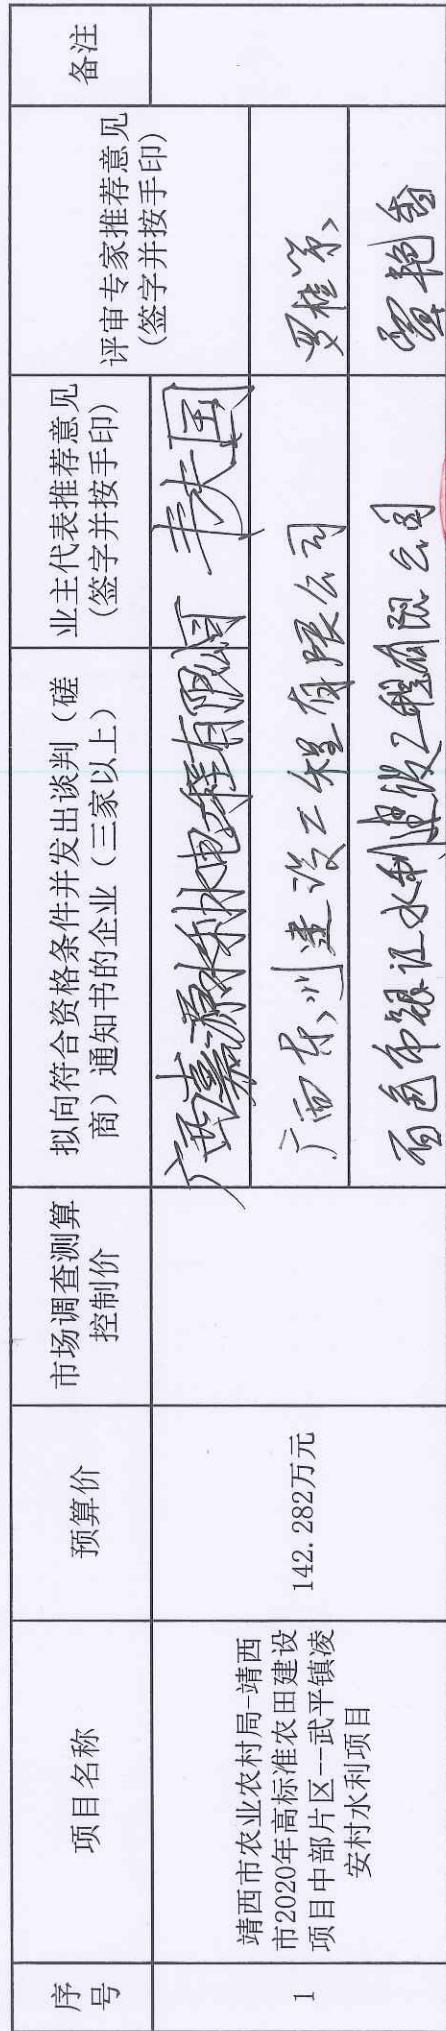 序
号
项目名称
预算价
市场调查测算
控制价
拟向符合资格条件并发出谈判（磋
商）通知书的企业（三家以上）
业主代表推荐意见
(签字并按手印)
评审专家推荐意见
(签字并按手印)
备注
1
靖西市农业农村局-靖西
市2020年高标准农田建设
项目中部片区--武平镇凌
安村水利项目
142.282万元
广西嘉源水利水电工程有限公司
广西东川建设工程有限公司
百色市银江水利建设工程有限公司